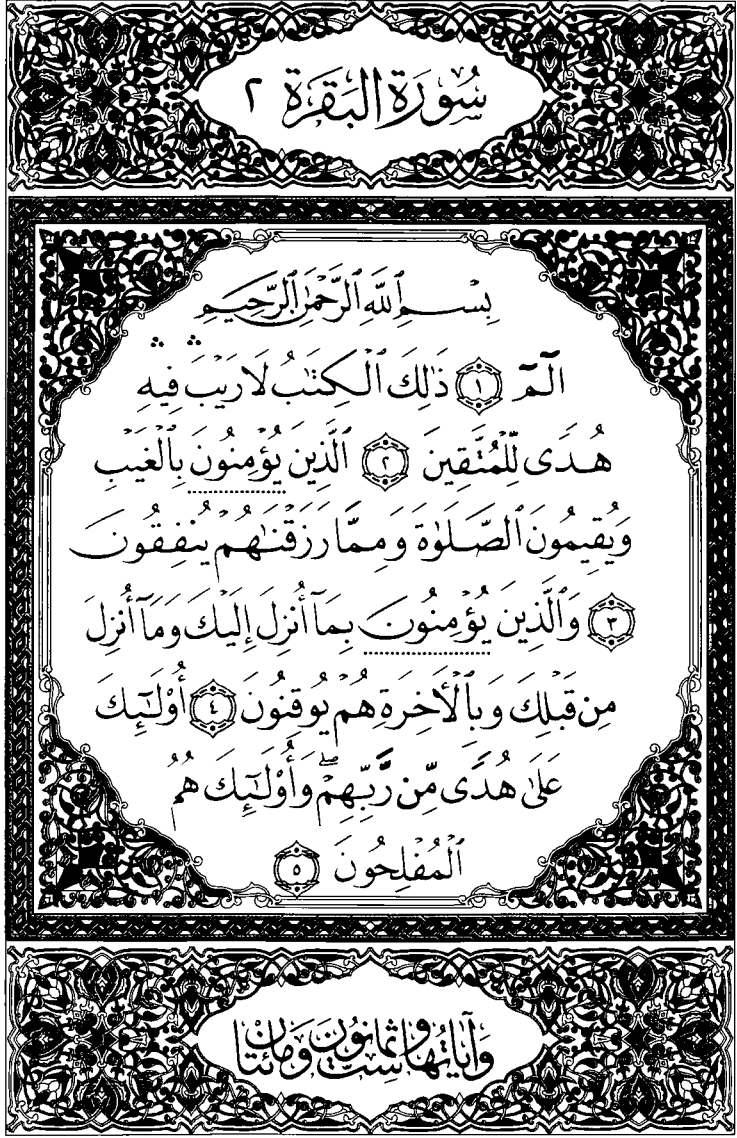 سُورَةُ البَقَرَةِ ٢
بِسْمِ ٱللَّهِ ٱلرَّحْمَٰنِ ٱلرَّحِيمِ
الٓمٓ ١ ذَٰلِكَ ٱلْكِتَٰبُ لَا رَيْبَ ۛ فِيهِ ۛ
هُدًى لِّلْمُتَّقِينَ ٢ ٱلَّذِينَ يُؤْمِنُونَ بِٱلْغَيْبِ
وَيُقِيمُونَ ٱلصَّلَوٰةَ وَمِمَّا رَزَقْنَٰهُمْ يُنفِقُونَ
٣ وَٱلَّذِينَ يُؤْمِنُونَ بِمَآ أُنزِلَ إِلَيْكَ وَمَآ أُنزِلَ
مِن قَبْلِكَ وَبِٱلْأَخِرَةِ هُمْ يُوقِنُونَ ٤ أُو۟لَٰٓئِكَ
عَلَىٰ هُدًى مِّن رَّبِّهِمْ ۖ وَأُو۟لَٰٓئِكَ هُمُ
ٱلْمُفْلِحُونَ ٥
وَآيَاتُهَا سِتٌّ وَثَمَانُونَ وَمَائَتَانِ